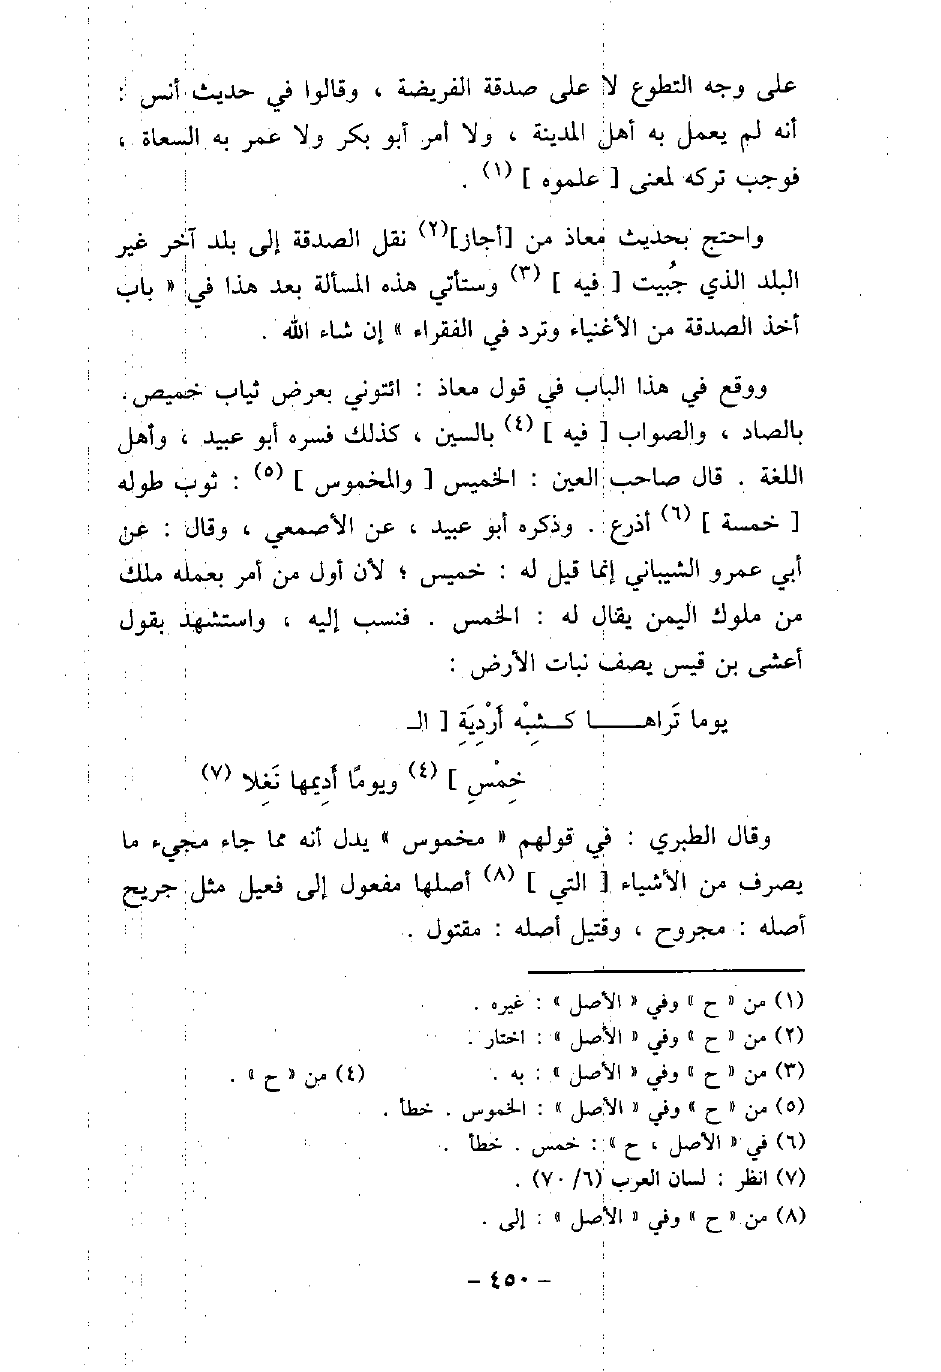 على وجه التطوع لا على صدقة الفريضة ، وقالوا في حديث أنس :
أنه لم يعمل به أهل المدينة ، ولا أمر أبو بكر ولا عمر به السعاة ،
فوجب تركه لمعنى [ علموه ] (١) .
واحتج بحديث معاذ من [أجاز](٢) نقل الصدقة إلى بلد آخر غير
البلد الذي جُبيت [ فيه ] (٣) وستأتي هذه المسألة بعد هذا في « باب
أخذ الصدقة من الأغنياء وترد في الفقراء » إن شاء الله .
ووقع في هذا الباب في قول معاذ : ائتوني بعرض ثياب خميص .
بالصاد ، والصواب [ فيه ] (٤) بالسين ، كذلك فسره أبو عبيد ، وأهل
اللغة . قال صاحب العين : الخميس [ والمخموس ] (٥) : ثوب طوله
[ خمسة ] (٦) أذرع . وذكره أبو عبيد ، عن الأصمعي ، وقال : عن
أبي عمرو الشيباني إنما قيل له : خميس ؛ لأن أول من أمر بعمله ملك
من ملوك اليمن يقال له : الخمس . فنسب إليه ، واستشهد بقول
أعشى بن قيس يصف نبات الأرض :
يوما تَراهــــا كــشِبْه أَرْدِيَةِ [ الـ
خِمْسِ ] (٤) ويومًا أَدِيمها نَغِلا (٧)
وقال الطبري : في قولهم « مخموس » يدل أنه مما جاء مجيء ما
يصرف من الأشياء [ التي ] (٨) أصلها مفعول إلى فعيل مثل جريح
أصله : مجروح ، وقتيل أصله : مقتول .
(١) من « ح » وفي « الأصل » : غيره .
(٢) من « ح » وفي « الأصل » : اختار .
(٣) من « ح » وفي « الأصل » : به . (٤) من « ح » .
(٥) من « ح » وفي « الأصل » : الخموس . خطأ .
(٦) في « الأصل ، ح » : خمس . خطأ .
(٧) انظر : لسان العرب (٦/ ٧٠) .
(٨) من « ح » وفي « الأصل » : إلى .
- ٤٥٠ -